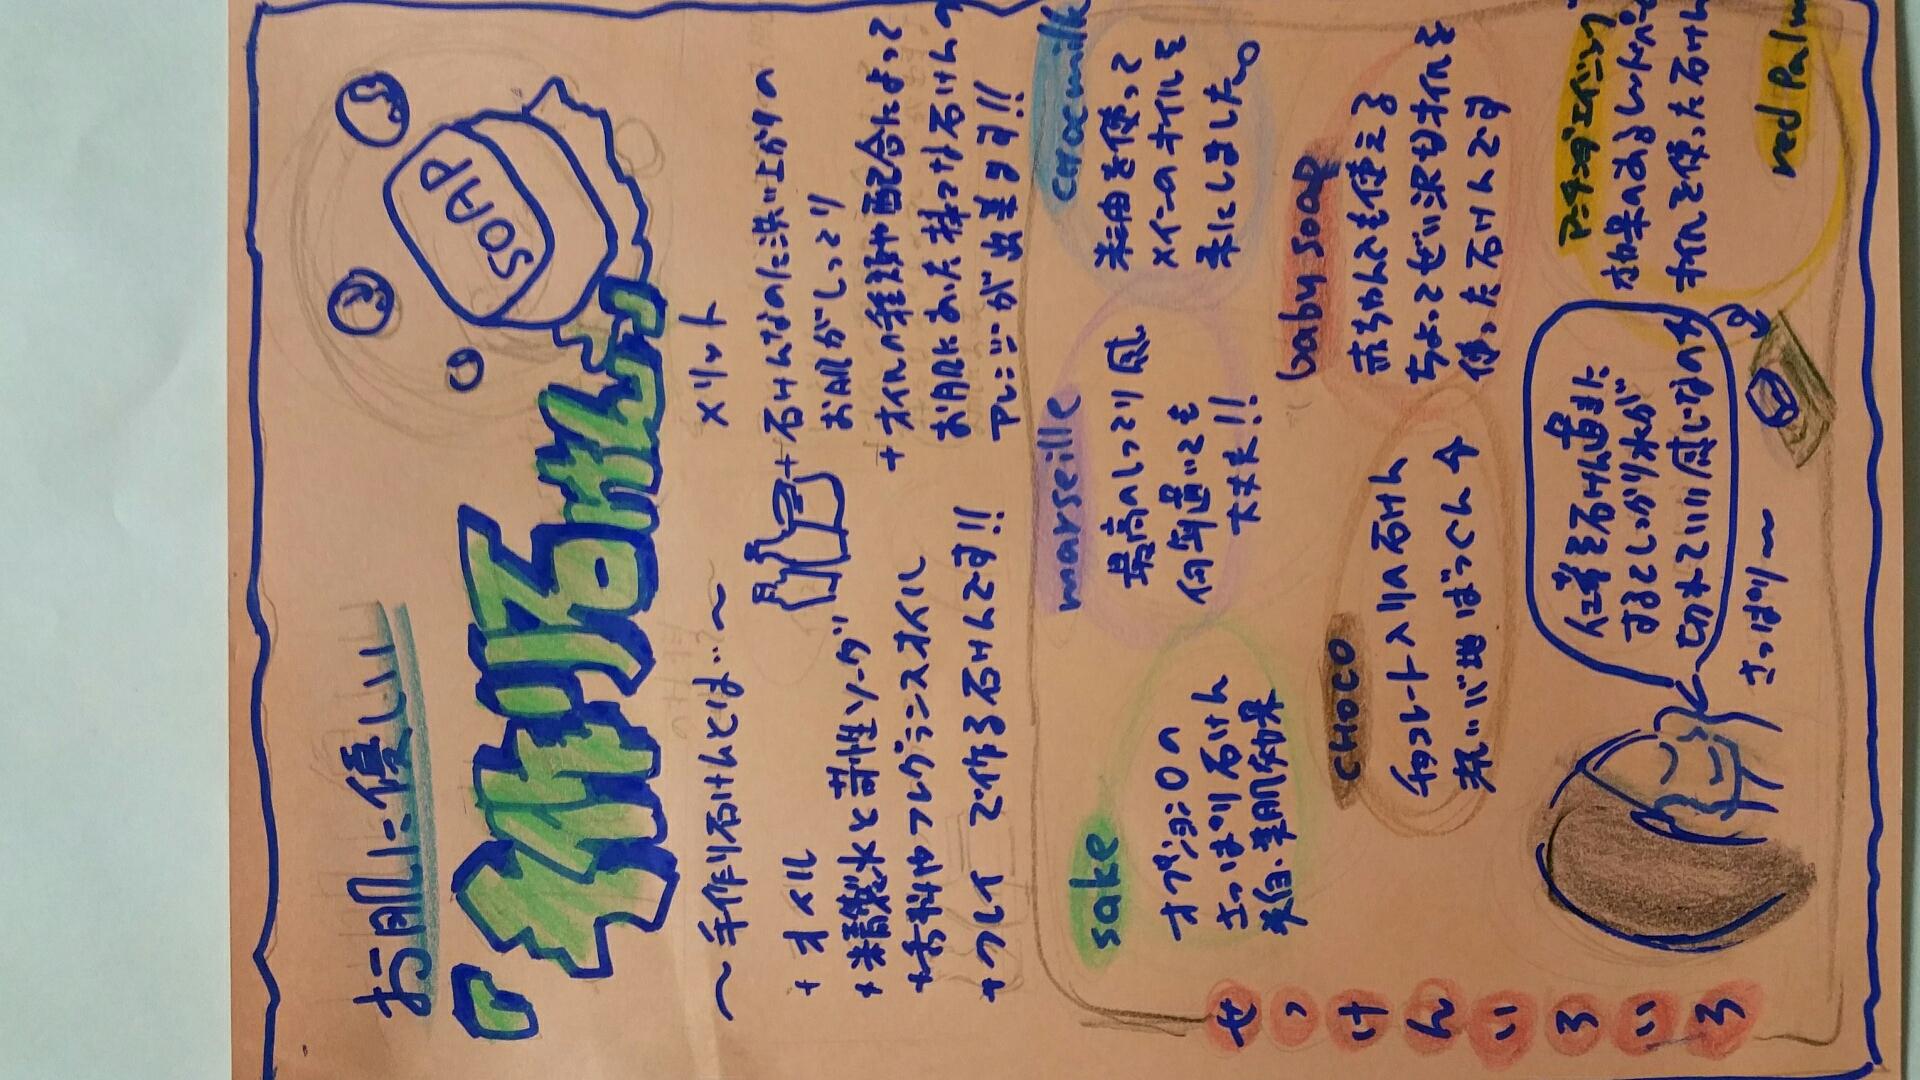 お肌に優しい
「手作り石けん」
SOAP
〜手作り石けんとは…〜
+ オイル
+ 精製水と苛性ソーダ
+ 香料やフレグランスオイル
+ クレイ で作る石けんです!!
メリット
+ 石けんなのに洗い上がりの
お肌がしっとり
+ オイルの種類や配合によって
お肌にあった 石けんの
アレンジが出来ます!!
せっけんいろいろ
sake
オプション0の
さっぱり石けん
美白・美肌効果
marseille
最高のしっとり感
何年置いても
大丈夫!!
米油を使って
メインのオイルを
米にしました。
CHOCO
チョコレート入りの石けん
洗い心地ばつぐん
baby soap
赤ちゃんも使える
ちょっとぜい沢なオイルを
使った石けんです
アンチエイジング
効果のある
オイルを使った石けん
red Palm
仕事を石けん置きに
するとしっかり水が
切れていい感じなの
さっぱり〜